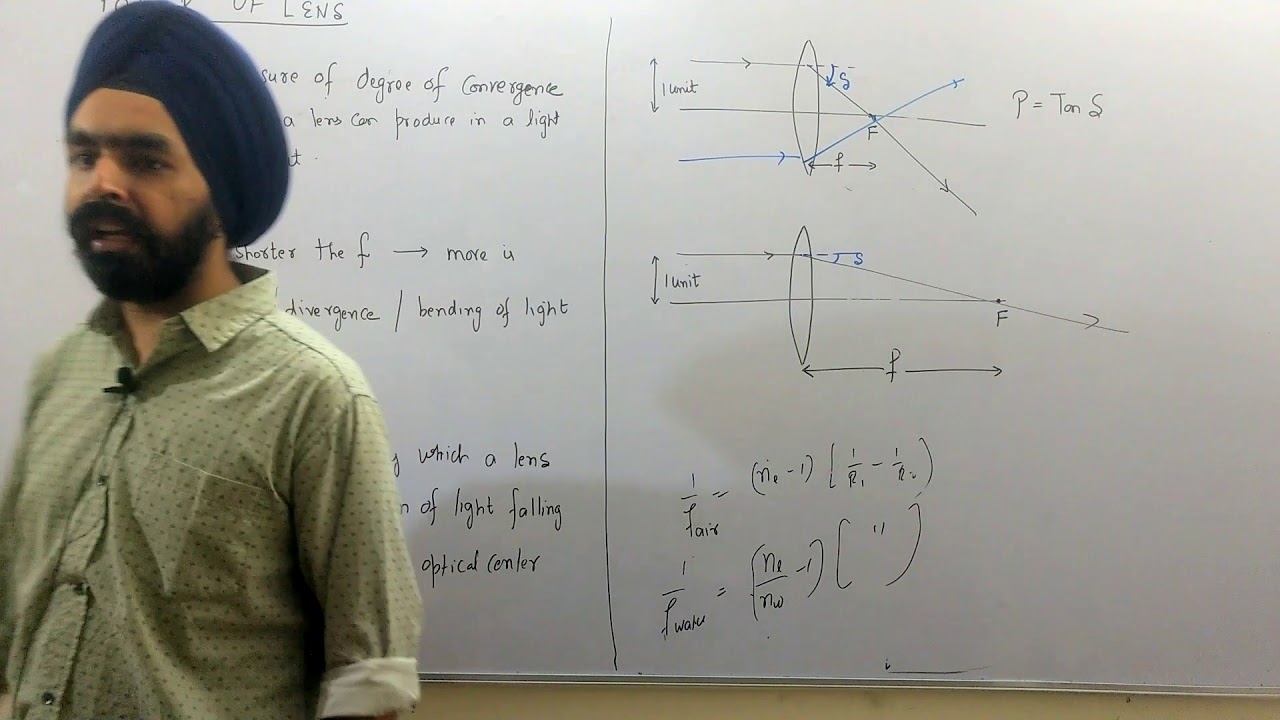 OF LENS
sure of degree of convergence
a lens can produce in a light
t.
shorter the f → more is
divergence / bending of light
which a lens
n of light falling
optical center
1 unit
δ
F
f
P = Tan δ
1 unit
δ
F
f
1/f air = (nₑ - 1) [1/R₁ - 1/R₂)
1/f water = (nₑ/nω - 1) [ " )